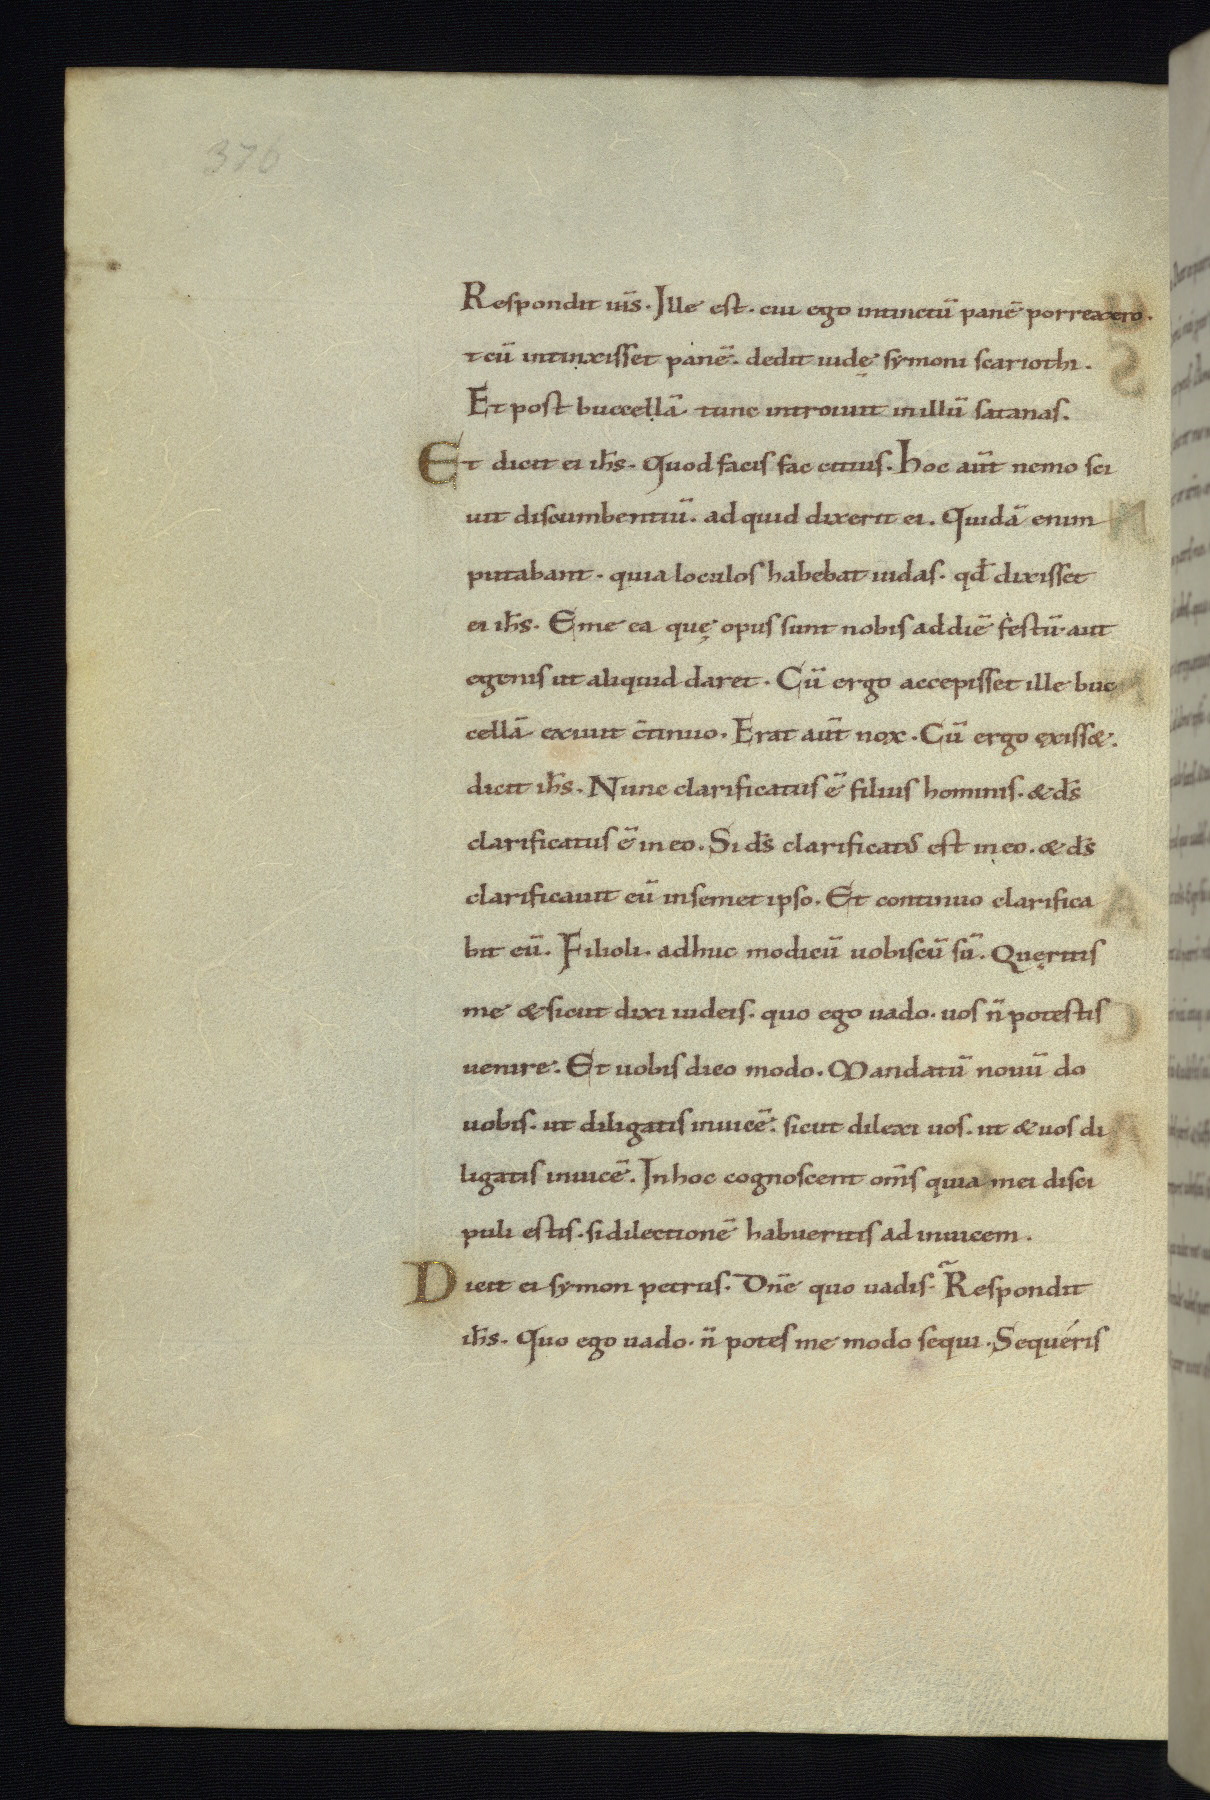 376
Respondit ih̄s. Ille est. cui ego intinctū panē porrexero.
t cū intinxisset panē. dedit iudę symoni scariothi.
Et post buccellā tunc introiuit in illū satanas.
Et dicit ei ih̄s. Quod facis fac citius. Hoc aūt nemo sci
uit discumbentiū. ad quid dixerit ei. Quidā enim
putabant. quia loculos habebat iudas. qd̄ dixisset
ei ih̄s. Eme ea quę opus sunt nobis ad diē festū. aut
egenis ut aliquid daret. Cū ergo accepisset ille buc
cellā exiuit c̄tinuo. Erat aūt nox. Cū ergo exiss&.
dicit ih̄s. Nunc clarificatus ē filius hominis. & ds̄
clarificatus ē in eo. Si ds̄ clarificat᾽ est in eo. & ds̄
clarificauit eū in semet ipso. Et continuo clarifica
bit eū. Filioli. adhuc modicū uobiscū sū. Quęritis
me & sicut dixi iudeis. quo ego uado. uos n̄ potestis
uenire. Et uobis dico modo. Mandatū nouū do
uobis. ut diligatis inuicē. sicut dilexi uos. ut & uos di
ligatis inuicē. In hoc cognoscent om̄s quia mei disci
puli estis. si dilectionē habueritis ad inuicem.
Dicit ei symon petrus. Dn̄e quo uadis. Respondit
ih̄s. Quo ego uado. n̄ potes me modo sequi. Sequéris